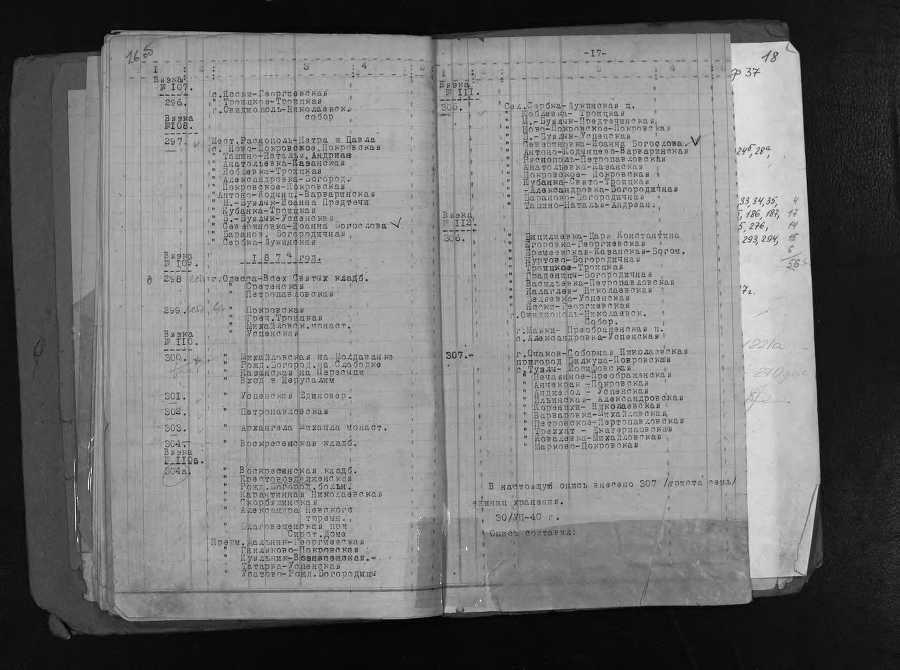 16
1 2 3 4
Вязка
№ 107.
с.Яссы-Георгиевская
296. "Троицкое-Троицкая
г.Овидиополь-Николаевск.
собор
Вязка
№108.
297. Мест.Раскополь-Петра и Павла
с. Ново-Покровское,Покровская
" Ташино-Наталья,Андриан
" Анатольевка-Казанская
" Коблевка-Троицкая
" Александровка-Богород.
" Покровское-Покровская
" Антоно-Кодинц.-Варваринская
" Б.-Буялык-Иоанна Предтечи
" Кубанка-Троицкая
" Б.-Буялык-Успенская
" Севериновка-Иоанна Богослова
" Бараново, Богородичная
" Сербка-Лукинская
Вязка
№ 109.
1874 год.
298 г.Одесса-Всех Святых кладб.
" Сретенская
" Петропавловская
299. " Покровская
" Греч.Троицкая
" Михайловск.монаст.
" Успенская
Вязка
№ 110.
300. " Михайловская на Молдаванке
" Рожд.Богород.на Слободке
" Казанская на Пересыпи
" Вход в Иерусалим
301. " Успенская Единовер.
302. " Петропавловская
303. " Архангела Михаила монаст.
304. " Воскресенская кладб.
Вязка
№ 110а.
304а. " Воскресенская кладб.
" Крестовоздвиженская
" Рожд.Богород.больн.
" Карантинная Николаевская
" Скорбященская
" Александра Невского
тюремн.
" Благовещенская при
Сирот.Доме
Предм.Дальник-Георгиевская
" Гниляково-Покровская
" Куяльник-Вознесенская.-
" Татарка-Успенская
" Усатово-Рожд.Богородицы
-17-
Вязка
№ 111.
305. Сел.Сербка-Лукинская ц.
" Коблевка- Троицкая
" Б.-Буялык-Предтечинская
" Ново-Покровское-Покровская
" Б.-Буялык-Успенская
" Севериновка-Иоанна Богослова.
" Антоно-Кодинцево-Варваринская
" Раснополь-Петропавловская
" Анатольевка-Казанская
" Покровское- Покровская
" Кубанка-Свято-Троицкая
" -Александровка-Богородичная
" Бараново-Богородичная
" Ташино-Наталья-Андреан.
Вязка
№ 112.
306. " Егоровка-Георгиевская
" Троицкое-Троицкая
" Граденицы-Богородичная
" Васильевка-Петропавловская
" Калаглея- Николаевская
" Беляевка-Успенская
" Яссы-Георгиевская
г.Овидиополь-Николаевск.
Собор.
г.Маяки- Преображенская ц.
с.Александровка-Успенская
307.- г.Очаков-Соборная Николаевская
" Анчекрак -Покровская
" Аджигол - Успенская
" Ильинская- Александровская
" Коренихи- Николаевская
" Варваровка-Михайловская
" Петровское-Петропавловская
" Трихаты - Екатериновская
" Ковалевка-Михайловская
" Марково-Покровская
В настоящую опись внесено 307 /триста семь/
единиц хранения.
30/УП-40 г.
Опись составил:
18
37
33, 34, 35, 4
186, 187, 17
276, 14
293, 294, 15
6
56